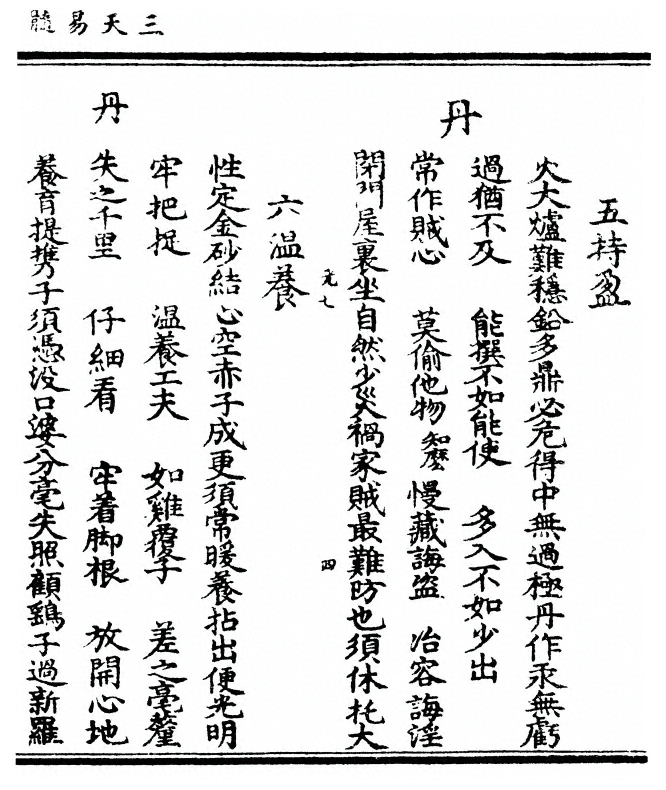 三天易髓
五持盈
火大爐難穩鉛多鼎必危得中無過極丹作汞無虧
丹
過猶不及 能撰不如能使 多入不如少出
常作賊心 莫偷他物 知麼 慢藏誨盜 冶容誨淫
閇門屋裏坐自然少災禍家賊最難防也須休托大
光七 四
六温養
性定金砂結心空赤子成更須常暖養拈出便光明
丹
牢把捉 温養工夫 如雞覆子 差之毫釐
失之千里 仔細看 牢着脚根 放開心地
養育提攜子須憑没口婆分毫失照顧鷄子過新羅